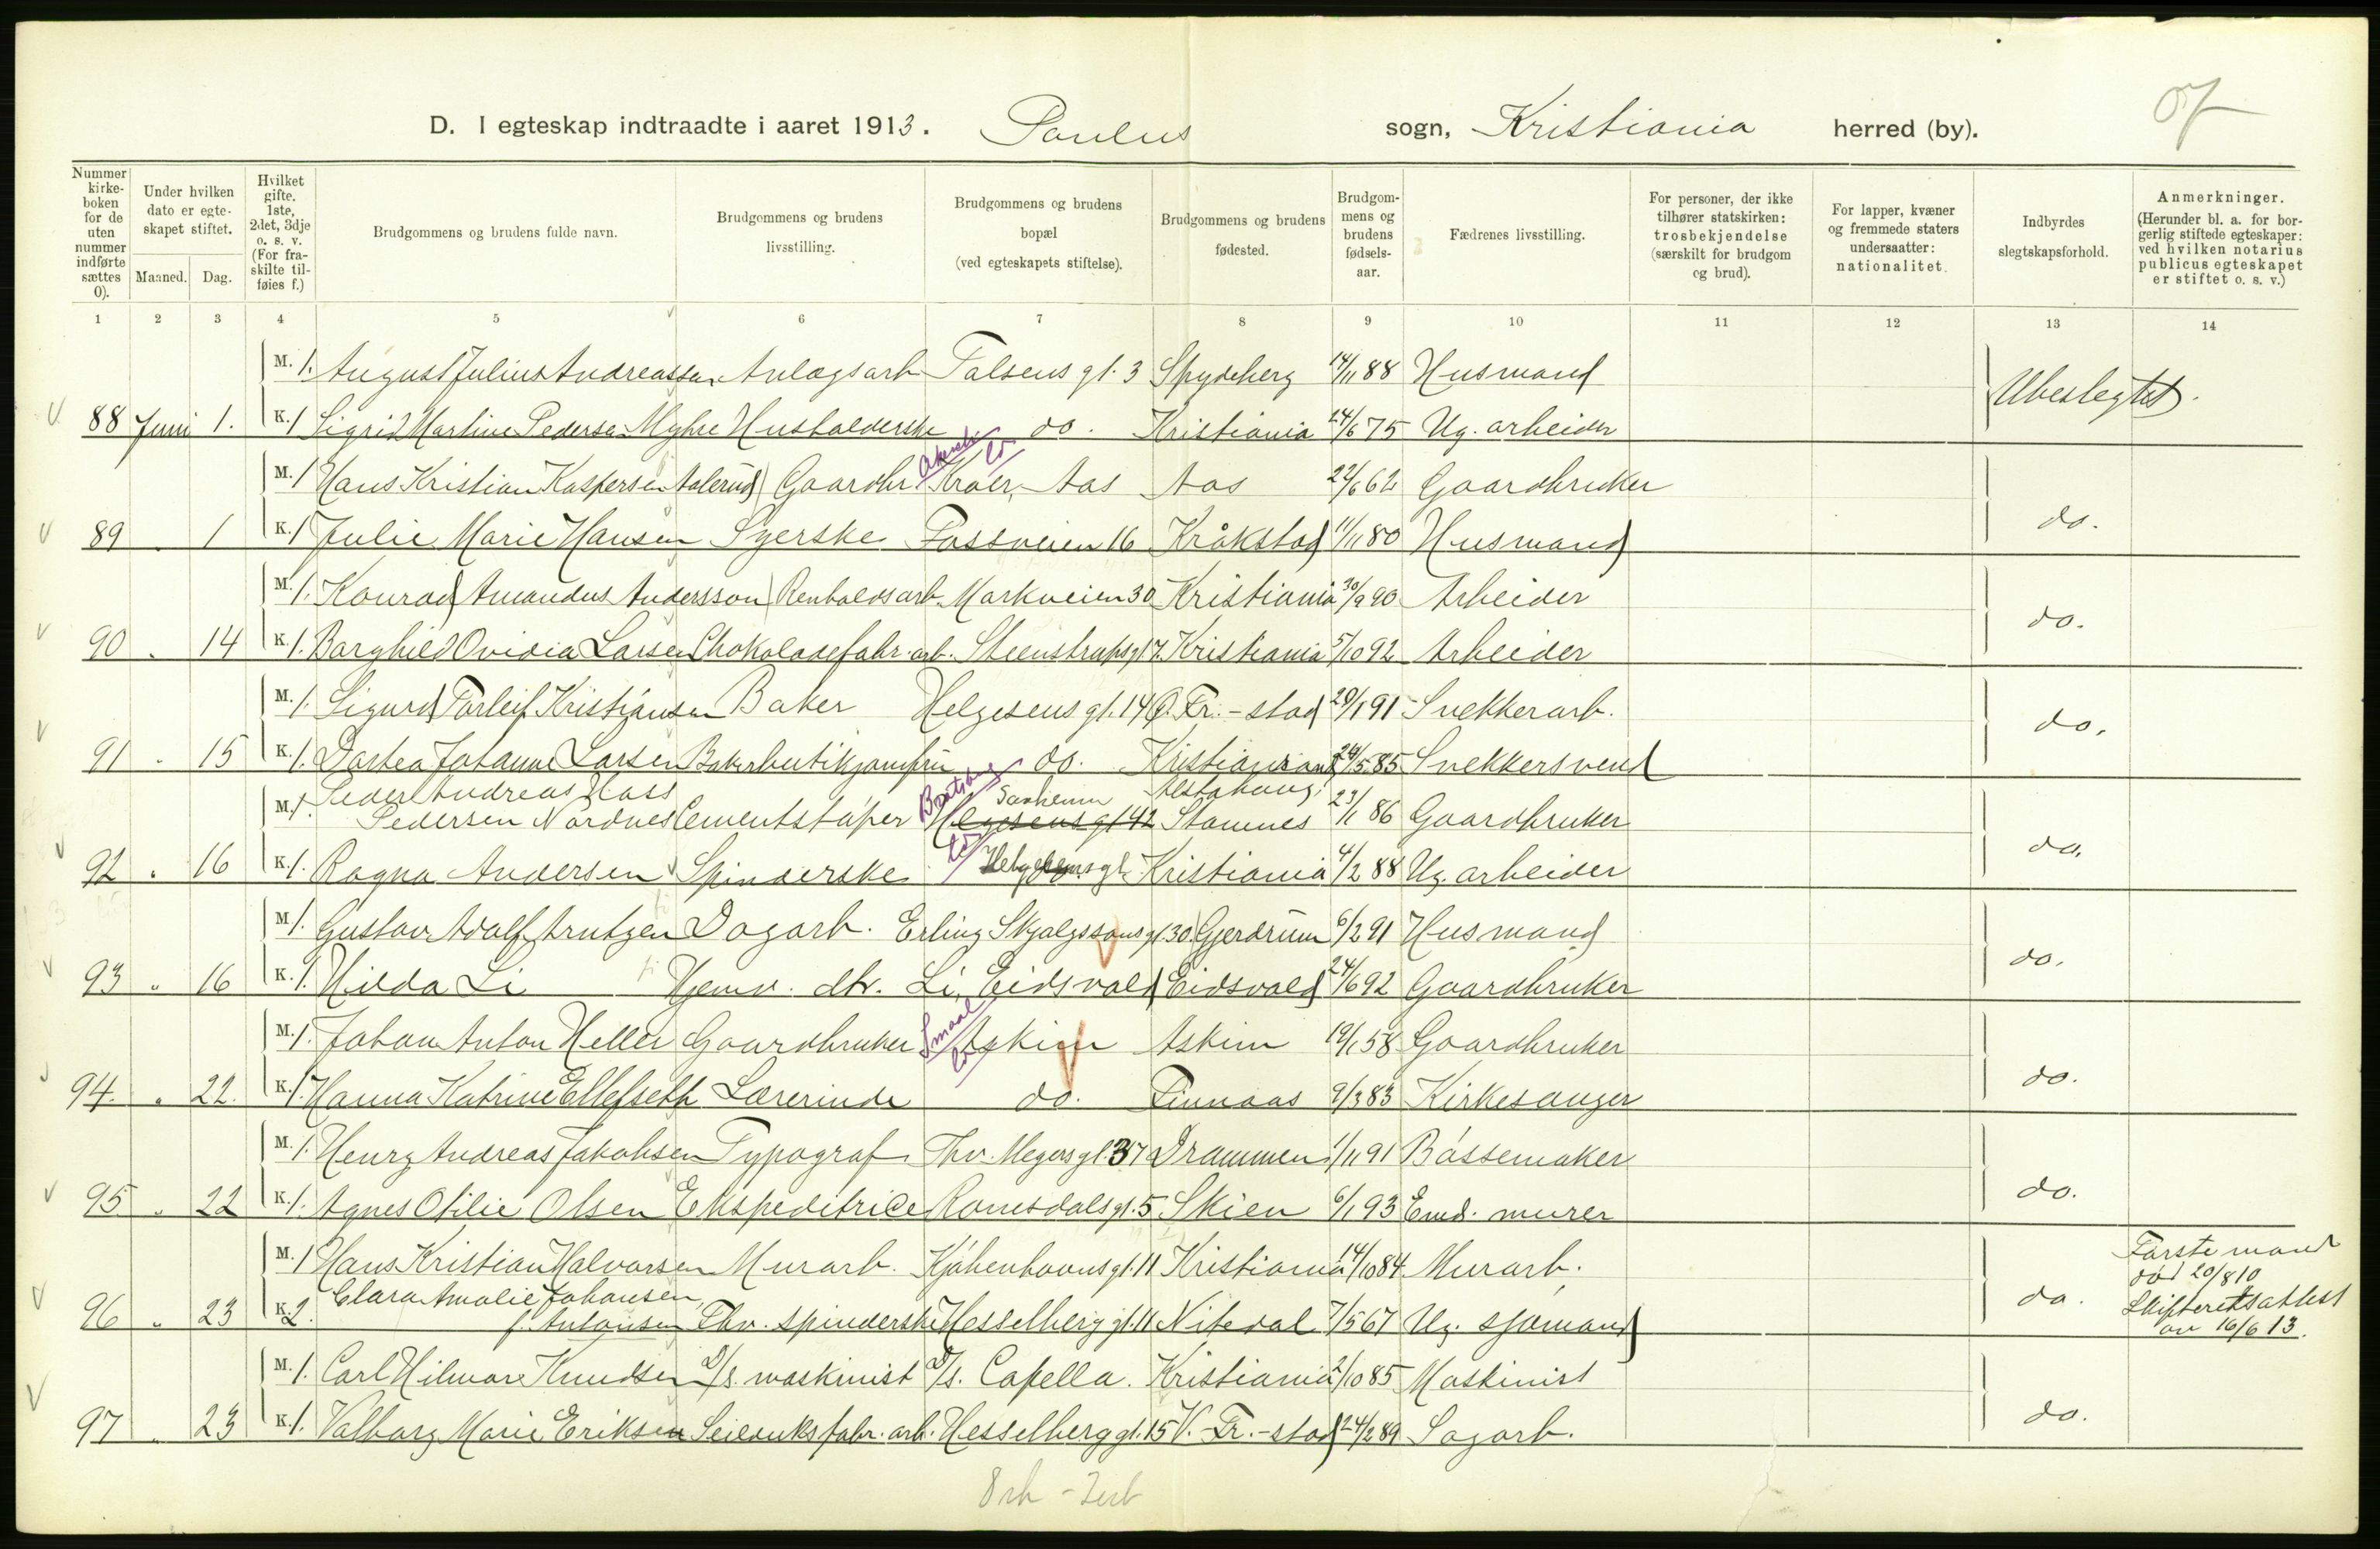 D. I egteskap indtraadte i aaret 1913. Paulus sogn, Kristiania herred (by).
Nummer kirkeboken for de uten nummer indførte sættes 0).
Under hvilken dato er egteskapet stiftet.
Maaned. Dag.
Hvilket gifte. 1ste, 2det, 3dje o. s. v. (For fraskilte tilføies f.)
Brudgommens og brudens fulde navn.
Brudgommens og brudens livsstilling.
Brudgommens og brudens bopæl (ved egteskapets stiftelse).
Brudgommens og brudens fødested.
Brudgommens og brudens fødselsaar.
Fædrenes livsstilling.
For personer, der ikke tilhører statskirken: trosbekjendelse (særskilt for brudgom og brud).
For lapper, kvæner og fremmede staters undersaatter: nationalitet.
Indbyrdes slegtskapsforhold.
Anmerkninger. (Herunder bl. a. for borgerlig stiftede egteskaper: ved hvilken notarius publicus egteskapet er stiftet o. s. v.)
1 2 3 4 5 6 7 8 9 10 11 12 13 14
M. 1. August Julius Andreassen Anlægsarb Falsens gt. 3 Spydeberg 14/11 88 Husmand Ubeslegtet.
88 Juni 1. K. 1 Sigrid Martine Pedersen Myhre Husholderske do. Kristiania 24/6 75 Ug. arbeider
M. 1 Hans Kristian Kaspersen Aalerud Gaardbr Kroer, Aas Aas 22/6 62 Gaardbruker do.
89 . 1 K. 1 Julie Marie Hansen Syerske Fossveien 16 Kråkstad 11/11 80 Husmand
M. 1. Konrad Amandus Andersson Renholdsarb. Markveien 30 Kristiania 30/9 90 Arbeider do.
90 . 14 K. 1. Borghild Ovidia Larsen Chokoladefabr. arb. Steenstrupsgt 7. Kristiania 5/10 92 Arbeider
M. 1. Sigurd Torleif Kristiansen Baker Helgesens gt. 14 Ø. Fr.-stad 20/1 91 Snekkerarb. do.
91 . 15 K. 1. Dortea Johanne Larsen Bakerbutikjomfru do. Kristiansand 24/5 85 Snekkersvend
M. 1. Peder Andreas Klass Pedersen Nordnes Cementstøper Bratsberg Helgesens gt 42 Saaheim Alstahaug, Stamnes 23/1 86 Gaardbruker do.
92 " 16 K. 1. Ragna Andersen Spinderske Helgesens gt. Kristiania 4/2 88 Ug. arbeider
M. 1. Gustav Adolf Arntzen Dagarb. Erling Skjalgssons gt 30. Gjerdrum 6/2 91 Husmand do.
93 " 16 K. 1. Hilda Li Hjemv. dtr. Li, Eidsvold Eidsvold 24/6 92 Gaardbruker
M. 1. Johan Anton Heller Gaardbruker Smaal Askim Askim 19/1 58 Gaardbruker do.
94. " 22. K. 1. Hanna Katrine Ellefseth Lærerinde do. Finnaas 9/3 83 Kirkesanger
M. 1. Henry Andreas Jakobsen Typograf Thv. Meyers gt. 37 Drammen 1/11 91 Bøssemaker do.
95 " 22 K. 1. Agnes Otilie Olsen Ekspeditrice Romsdals gt. 5 Skien 6/1 93 Emd. murer
M. 1 Hans Kristian Halvorsen Murarb. Kjøbenhavns gt. 11 Kristiania 14/10 84 Murarb. do. Første mand død 20/8 10 Skifteretsattest av 16/6 13.
96 " 23 K. 2. Clara Amalie Johansen, f. Antonsen Fhv. spinderske Hesselberg gt. 11 Nitedal 7/5 67 Ug. sjømand
M. 1. Carl Hilmar Knudsen D/s. maskinist D/s. Capella. Kristiania 2/10 85 Maskinist do.
97 . 23 K. 1. Valborg Marie Eriksen Seilduksfabr. arb. Hesselberg gt. 15 V. Fr.-stad 24/2 89 Sagarb.